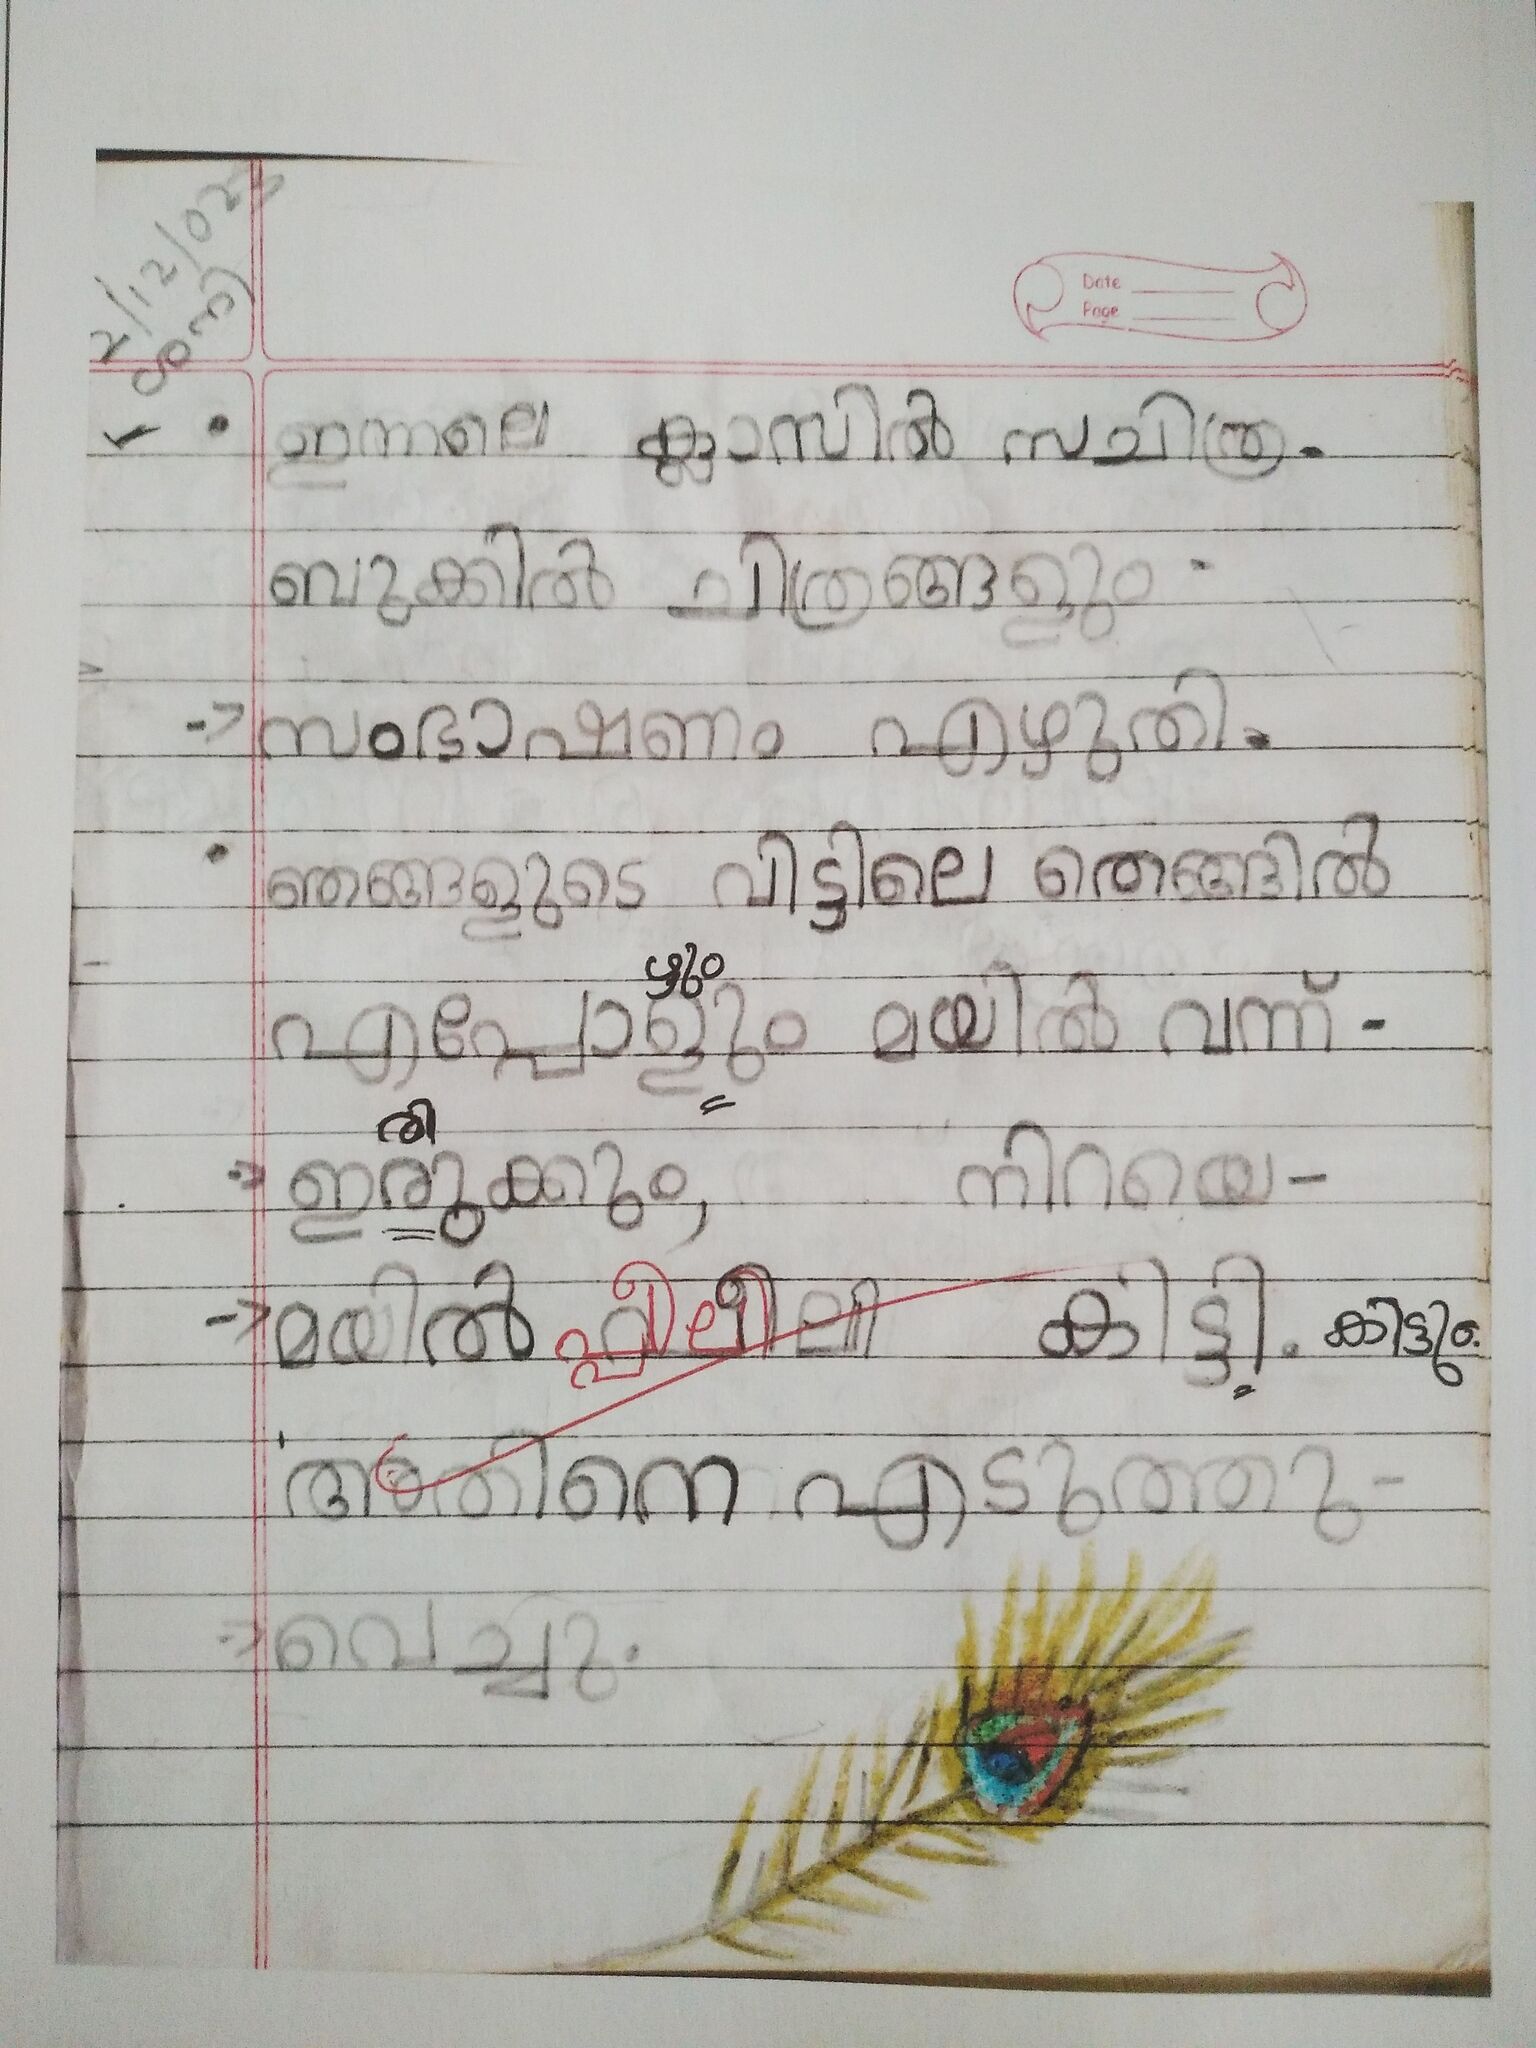 2/12/023
ശനി
Date
Page
ഇന്നലെ ക്ലാസിൽ സചിത്ര-
ബുക്കിൽ ചിത്രങ്ങളും -
-> സംഭാഷണം എഴുതി.
ഞങ്ങളുടെ വീട്ടിലെ തെങ്ങിൽ
ഴും
എപ്പോളും മയിൽ വന്ന് -
രി
-> ഇരുക്കും, നിറയെ -
-> മയിൽ പ്പീലി കിട്ടി. കിട്ടും.
അതിനെ എടുത്തു -
-> വെച്ചു.